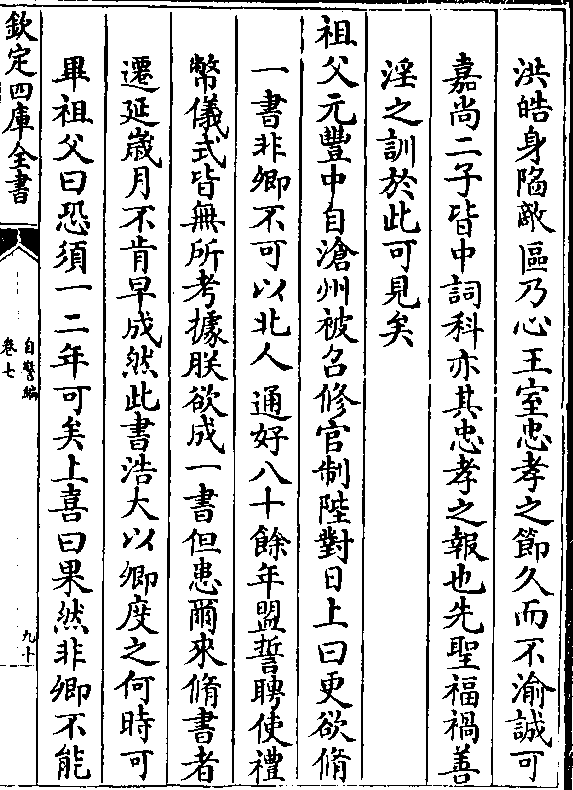 洪皓身䧟敵區乃心王室忠孝之節久而不渝誠可
嘉尚二子皆中詞科亦其忠孝之報也先聖福禍善
淫之訓於此可見矣
祖父元豐中自滄州被召修官制陛對日上曰更欲脩
一書非卿不可以北人通好八十餘年盟誓聘使禮
幣儀式皆無所考據朕欲成一書但患爾來脩書者
遷延歲月不肯早成然此書浩大以卿度之何時可
畢祖父曰恐須一二年可矣上喜曰果然非卿不能
欽定四庫全書
自警編
卷七
九十